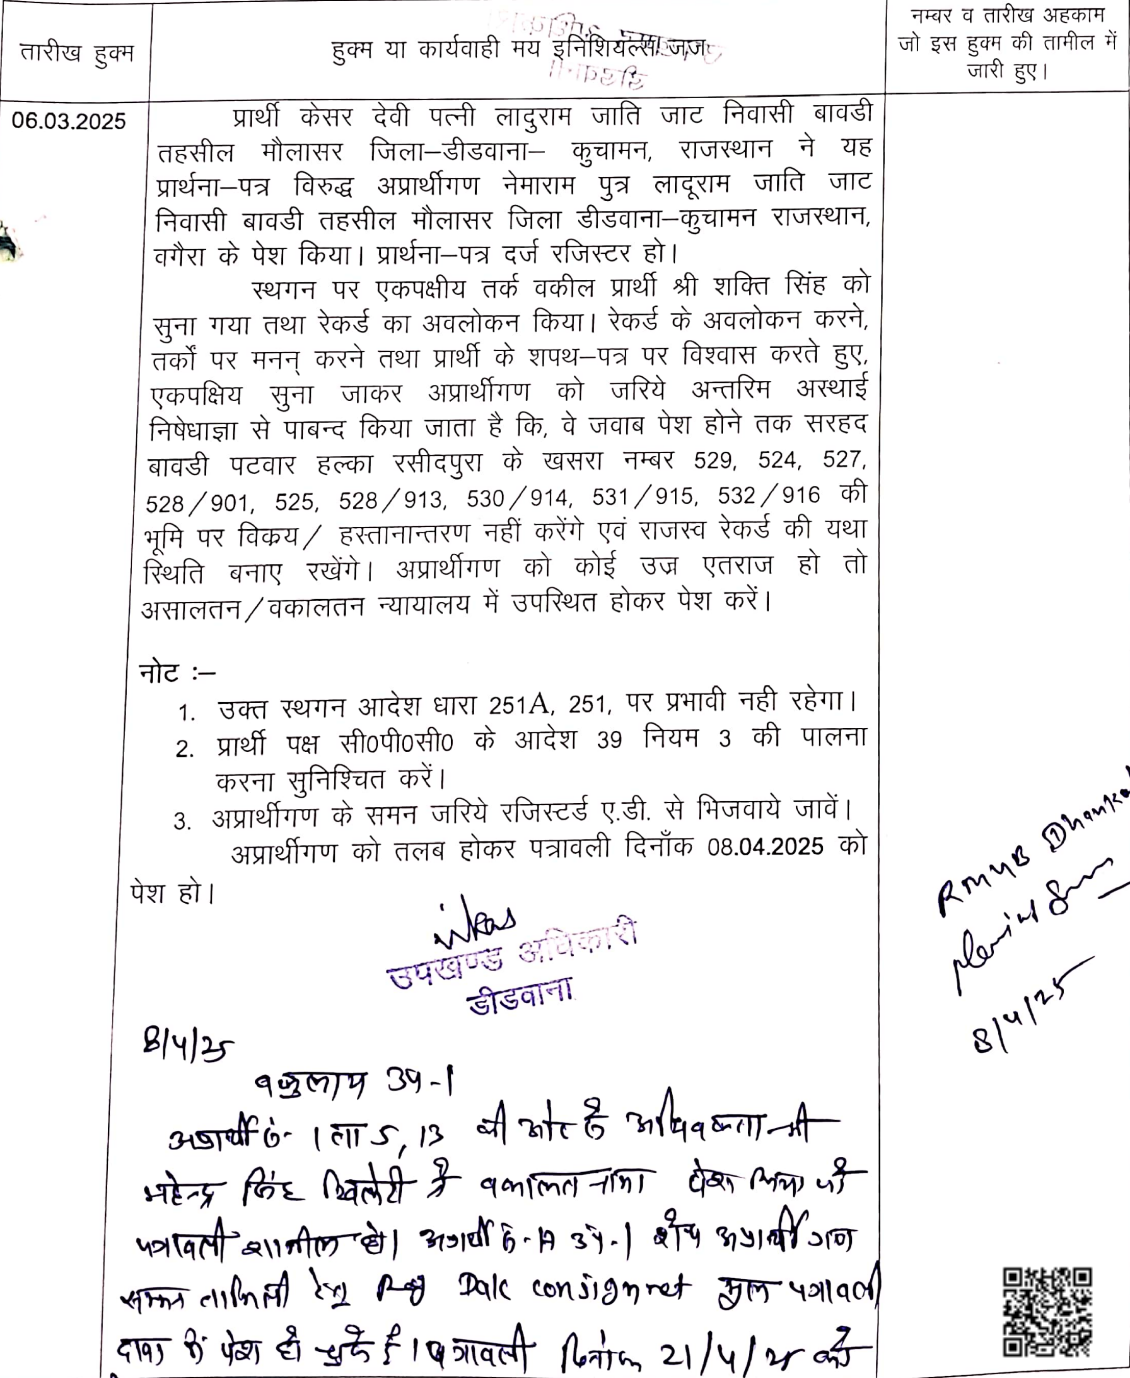 तारीख हुक्म
हुक्म या कार्यवाही मय इनिशियल्स जज
नम्बर व तारीख अहकाम
जो इस हुक्म की तामील में
जारी हुए।
06.03.2025
प्रार्थी केसर देवी पत्नी लादुराम जाति जाट निवासी बावडी
तहसील मौलासर जिला–डीडवाना– कुचामन, राजस्थान ने यह
प्रार्थना–पत्र विरुद्ध अप्रार्थीगण नेमाराम पुत्र लादूराम जाति जाट
निवासी बावडी तहसील मौलासर जिला डीडवाना–कुचामन राजस्थान,
वगैरा के पेश किया। प्रार्थना–पत्र दर्ज रजिस्टर हो।
स्थगन पर एकपक्षीय तर्क वकील प्रार्थी श्री शक्ति सिंह को
सुना गया तथा रेकर्ड का अवलोकन किया। रेकर्ड के अवलोकन करने,
तर्कों पर मनन् करने तथा प्रार्थी के शपथ–पत्र पर विश्वास करते हुए,
एकपक्षिय सुना जाकर अप्रार्थीगण को जरिये अन्तरिम अस्थाई
निषेधाज्ञा से पाबन्द किया जाता है कि, वे जवाब पेश होने तक सरहद
बावडी पटवार हल्का रसीदपुरा के खसरा नम्बर 529, 524, 527,
528/901, 525, 528/913, 530/914, 531/915, 532/916 की
भूमि पर विक्रय/ हस्तानान्तरण नहीं करेंगे एवं राजस्व रेकर्ड की यथा
स्थिति बनाए रखेंगे। अप्रार्थीगण को कोई उज्र एतराज हो तो
असालतन/वकालतन न्यायालय में उपस्थित होकर पेश करें।
नोट :–
1. उक्त स्थगन आदेश धारा 251A, 251, पर प्रभावी नही रहेगा।
2. प्रार्थी पक्ष सी0पी0सी0 के आदेश 39 नियम 3 की पालना
करना सुनिश्चित करें।
3. अप्रार्थीगण के समन जरिये रजिस्टर्ड ए.डी. से भिजवाये जावें।
अप्रार्थीगण को तलब होकर पत्रावली दिनाँक 08.04.2025 को
पेश हो।
उपखण्ड अधिकारी
डीडवाना
8/4/25
8/4/25
1 ता 5, 13 की ओर से अधिवक्ता श्री
महेन्द्र सिंह वकालत नामा पेश किया जो
पत्रावली शामील हो।
consignment पत्रावली
पेश हो चुके है। पत्रावली दिनांक 21/4/25 को